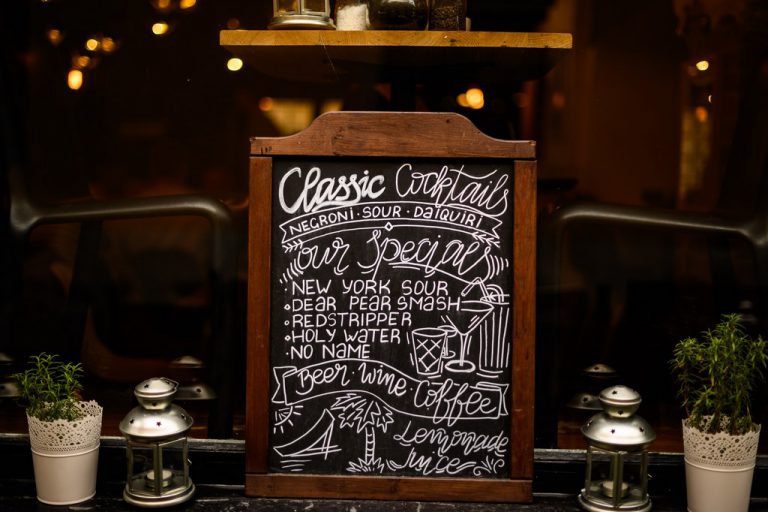 Classic Cocktails
NEGRONI · SOUR · DAIQUIRI
our Specials
· NEW YORK SOUR
· DEAR PEAR SMASH
· REDSTRIPPER
· HOLY WATER
· NO NAME
Beer · Wine · Coffee
Lemonade
Juice